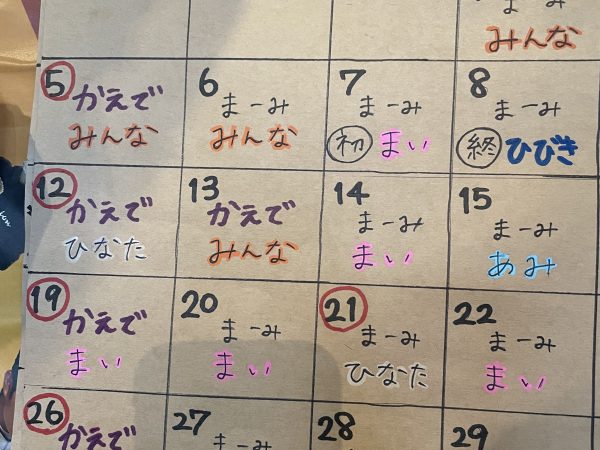 まーみ
みんな
5 かえで
みんな
6
まーみ
みんな
7
まーみ
初 まい
8
まーみ
終 ひびき
12 かえで
ひなた
13
かえで
みんな
14
まーみ
まい
15
まーみ
あみ
19 かえで
まい
20
まーみ
まい
21
まーみ
ひなた
22
まーみ
まい
26
かえで
27
まーみ
28
29